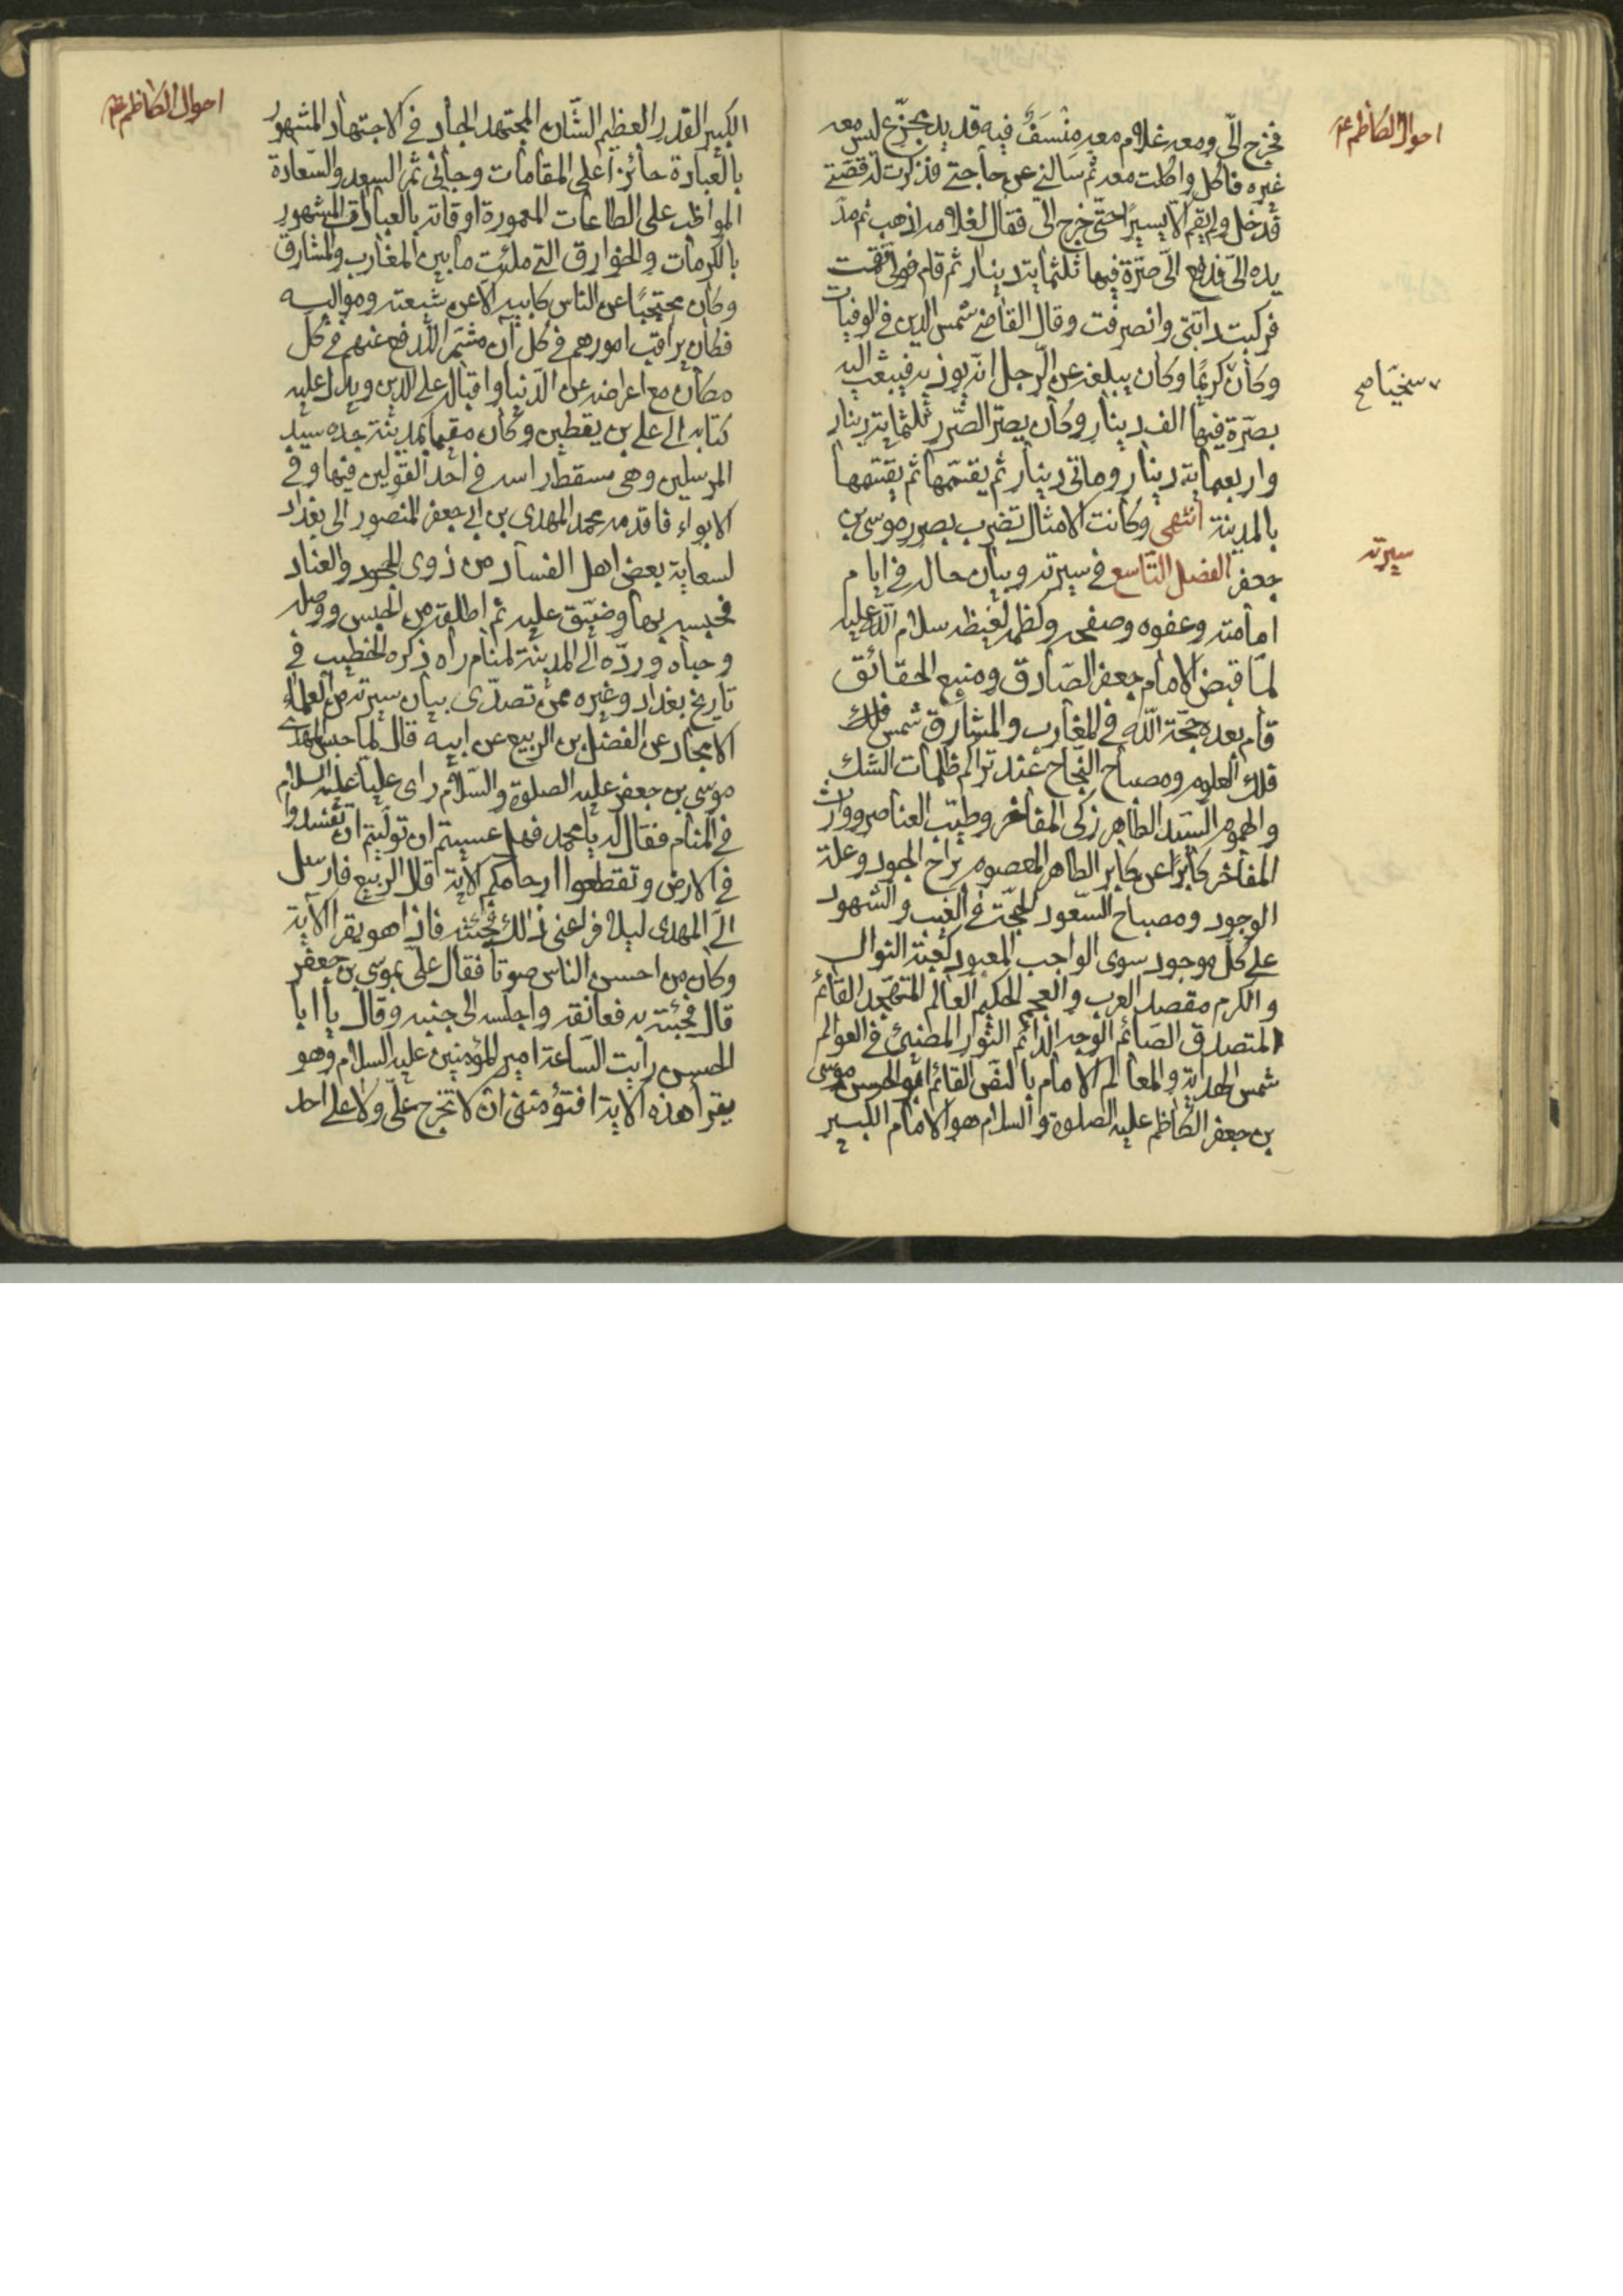 احوال الكاظم ع
فخرج الىّ ومعه غلام معه مِنْسَفٌ فيه قديد مجزّع ليس معه
غيره فاكل واكلت معه ثم سالني عن حاجتي فذكرت له قصّتي
فدخل ولم يقم الّا يسيرًا حتّى خرج الىّ فقال لغلامه اذهب ثم مدّ
يده الىّ فدفع الىّ صرّة فيها ثلثماية دينار ثم قام فولى فقمت
فركبت دابّتي وانصرفت وقال القاضي شمس الدين في الوفيات
وكان كريمًا وكان يبلغه عن الرّجل انّه يوذيه فيبعث اليه
سخيّا صح
بصرّة فيها الف دينار وكان يصرّ الصّرر ثلثماية دينار
واربعماية دينار وماتي دينار ثم يقسّمها ثم يقسمها
بالمدينة انتهى وكانت الامثال تضرب بصرر موسى بن
جعفر الفصل التّاسع في سيرته وبيان حاله في ايام
سيرته
امامته وعفوه وصفحه وكظمه لغيظه سلام اللّه عليه
لمّا قبض الامام جعفر الصّادق ومنبع الحقائق
قام بعده حجّة اللّه في المغارب والمشارق شمس فلك
فلك العلوم ومصباح النّجاح عند تراكم ظلمات الشك
والهموم السّيد الطاهر زكى المفاخر وطيّب العناصر ووارث
المفاخر كابرًا عن كابر الطاهر المعصوم براح الجود وعلة
الوجود ومصباح السّعود الحجّة في الغيب والشهود
على كلّ موجود سوى الواجب المعبود كعبة النوال
والكرم مقصد العرب والعجم الحكيم العالم المتهجّد القائم
المتصدق الصّائم الوجه الدائم النّور المضيئ في العوالم
شمس الهداية والمعالم الامام بالنّص القائم ابو الحسن موسى
بن جعفر الكاظم عليه الصلوة والسلام هو الامام الكبير
احوال الكاظم ع
الكبير القدر العظيم الشّان المجتهد الجاد في الاجتهاد المشهور
بالعبادة حائز اعلى المقامات وجانى ثمر السعد والسّعادة
المواظب على الطاعات المعمورة اوقاته بالعبادات المشهور
بالكرمات والخوارق التي ملئت ما بين المغارب والمشارق
وكان محتجبًا عن الناس كابيه الّا عن شيعته ومواليه
فكان يراقب امورهم في كل آن مشمّر الّدفع عنهم في كل
مكان مع اعراضه عن الدّنيا واقباله على الدين ويدل عليه
كتابه الى علي بن يقطين وكان مقيما بمدينة جده سيد
المرسلين وهي مسقط راسه في احد القولين فيها وفي
الابواء فاقدمه محمد المهدى بن ابي جعفر المنصور الى بغداد
لسعاية بعض اهل الفساد من ذوى الجحود والعناد
فحبسه بها وضيّق عليه ثم اطلقه من الحبس ووصله
وحباه وردّه الى المدينة لمنام راه ذكره الخطيب في
تاريخ بغداد وغيره ممّن تصدّى بيان سيرته من العلماء
الامجاد عن الفضل بن الربيع عن ابيه قال لما حبس المهدى
موسى بن جعفر عليه الصلوة والسّلام راى عليّا عليه السلام
في المنام فقال له يا محمد فهل عسيتم ان توليتم ان تفسدوا
في الارض وتقطعوا ارحامكم الاية قال الربيع فارسل
الىّ المهدى ليلا فراعنى ذلك فجئته فاذا هو يقرا الآية
وكان من احسن الناس صوتا فقال علىّ بموسى بن جعفر
قال فجئته به فعانقه واجلسه الى جنبه وقال يا ابا
الحسن رايت السّاعة امير المؤمنين عليه السلام وهو
يقرأ هذه الاية افتؤمننى ان لا تخرج علىّ ولا على احد